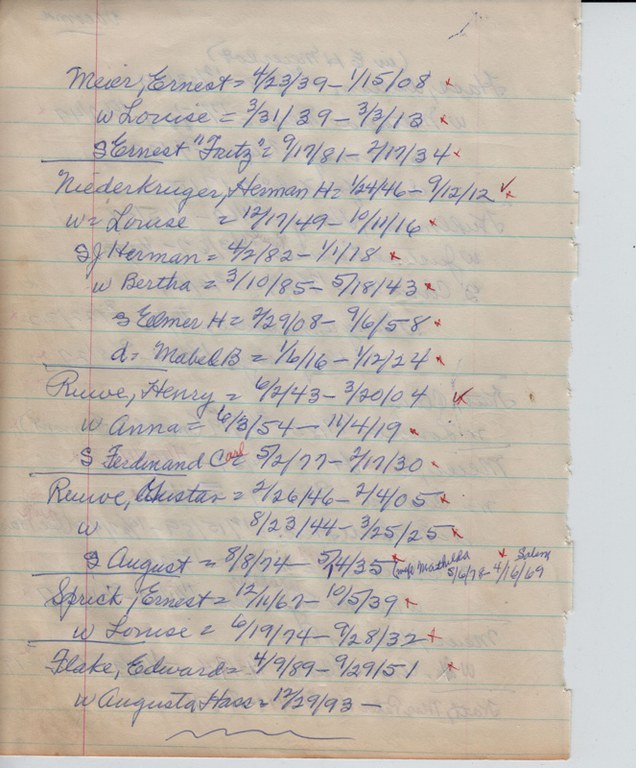 Meier, Ernest = 4/23/39 - 1/15/08 x
w Louise = 3/31/39 - 3/3/13 x
S Ernest "Fritz" = 9/17/81 - 2/17/34 x
Niederkruger, Herman H = 1/24/46 - 9/12/12 x
w = Louise = 12/17/49 - 10/11/16 x
SJ Herman = 4/2/82 - 1/1/18 x
w Bertha = 3/10/85 - 5/18/43 x
S Elmer H = 2/29/08 - 9/6/58 x
d = Mabel B = 1/6/16 - 1/12/24 x
Ruwe, Henry = 6/2/43 - 3/20/04 x
w Anna = 6/3/54 - 11/4/19 x
S Ferdinand Carl = 5/2/77 - 2/17/30 x
Ruwe, Gustav = 2/26/46 - 2/4/05 x
w 8/23/44 - 3/25/25 x
S August = 8/8/74 - 5/4/35 x (wife Mathilda x Salem
5/6/78 - 4/16/69
Sprick, Ernest = 12/11/67 - 10/5/39 x
w Louise = 6/19/74 - 9/28/32 x
Flake, Edward = 4/9/89 - 9/29/51 x
w Augusta Hass = 12/29/93 -